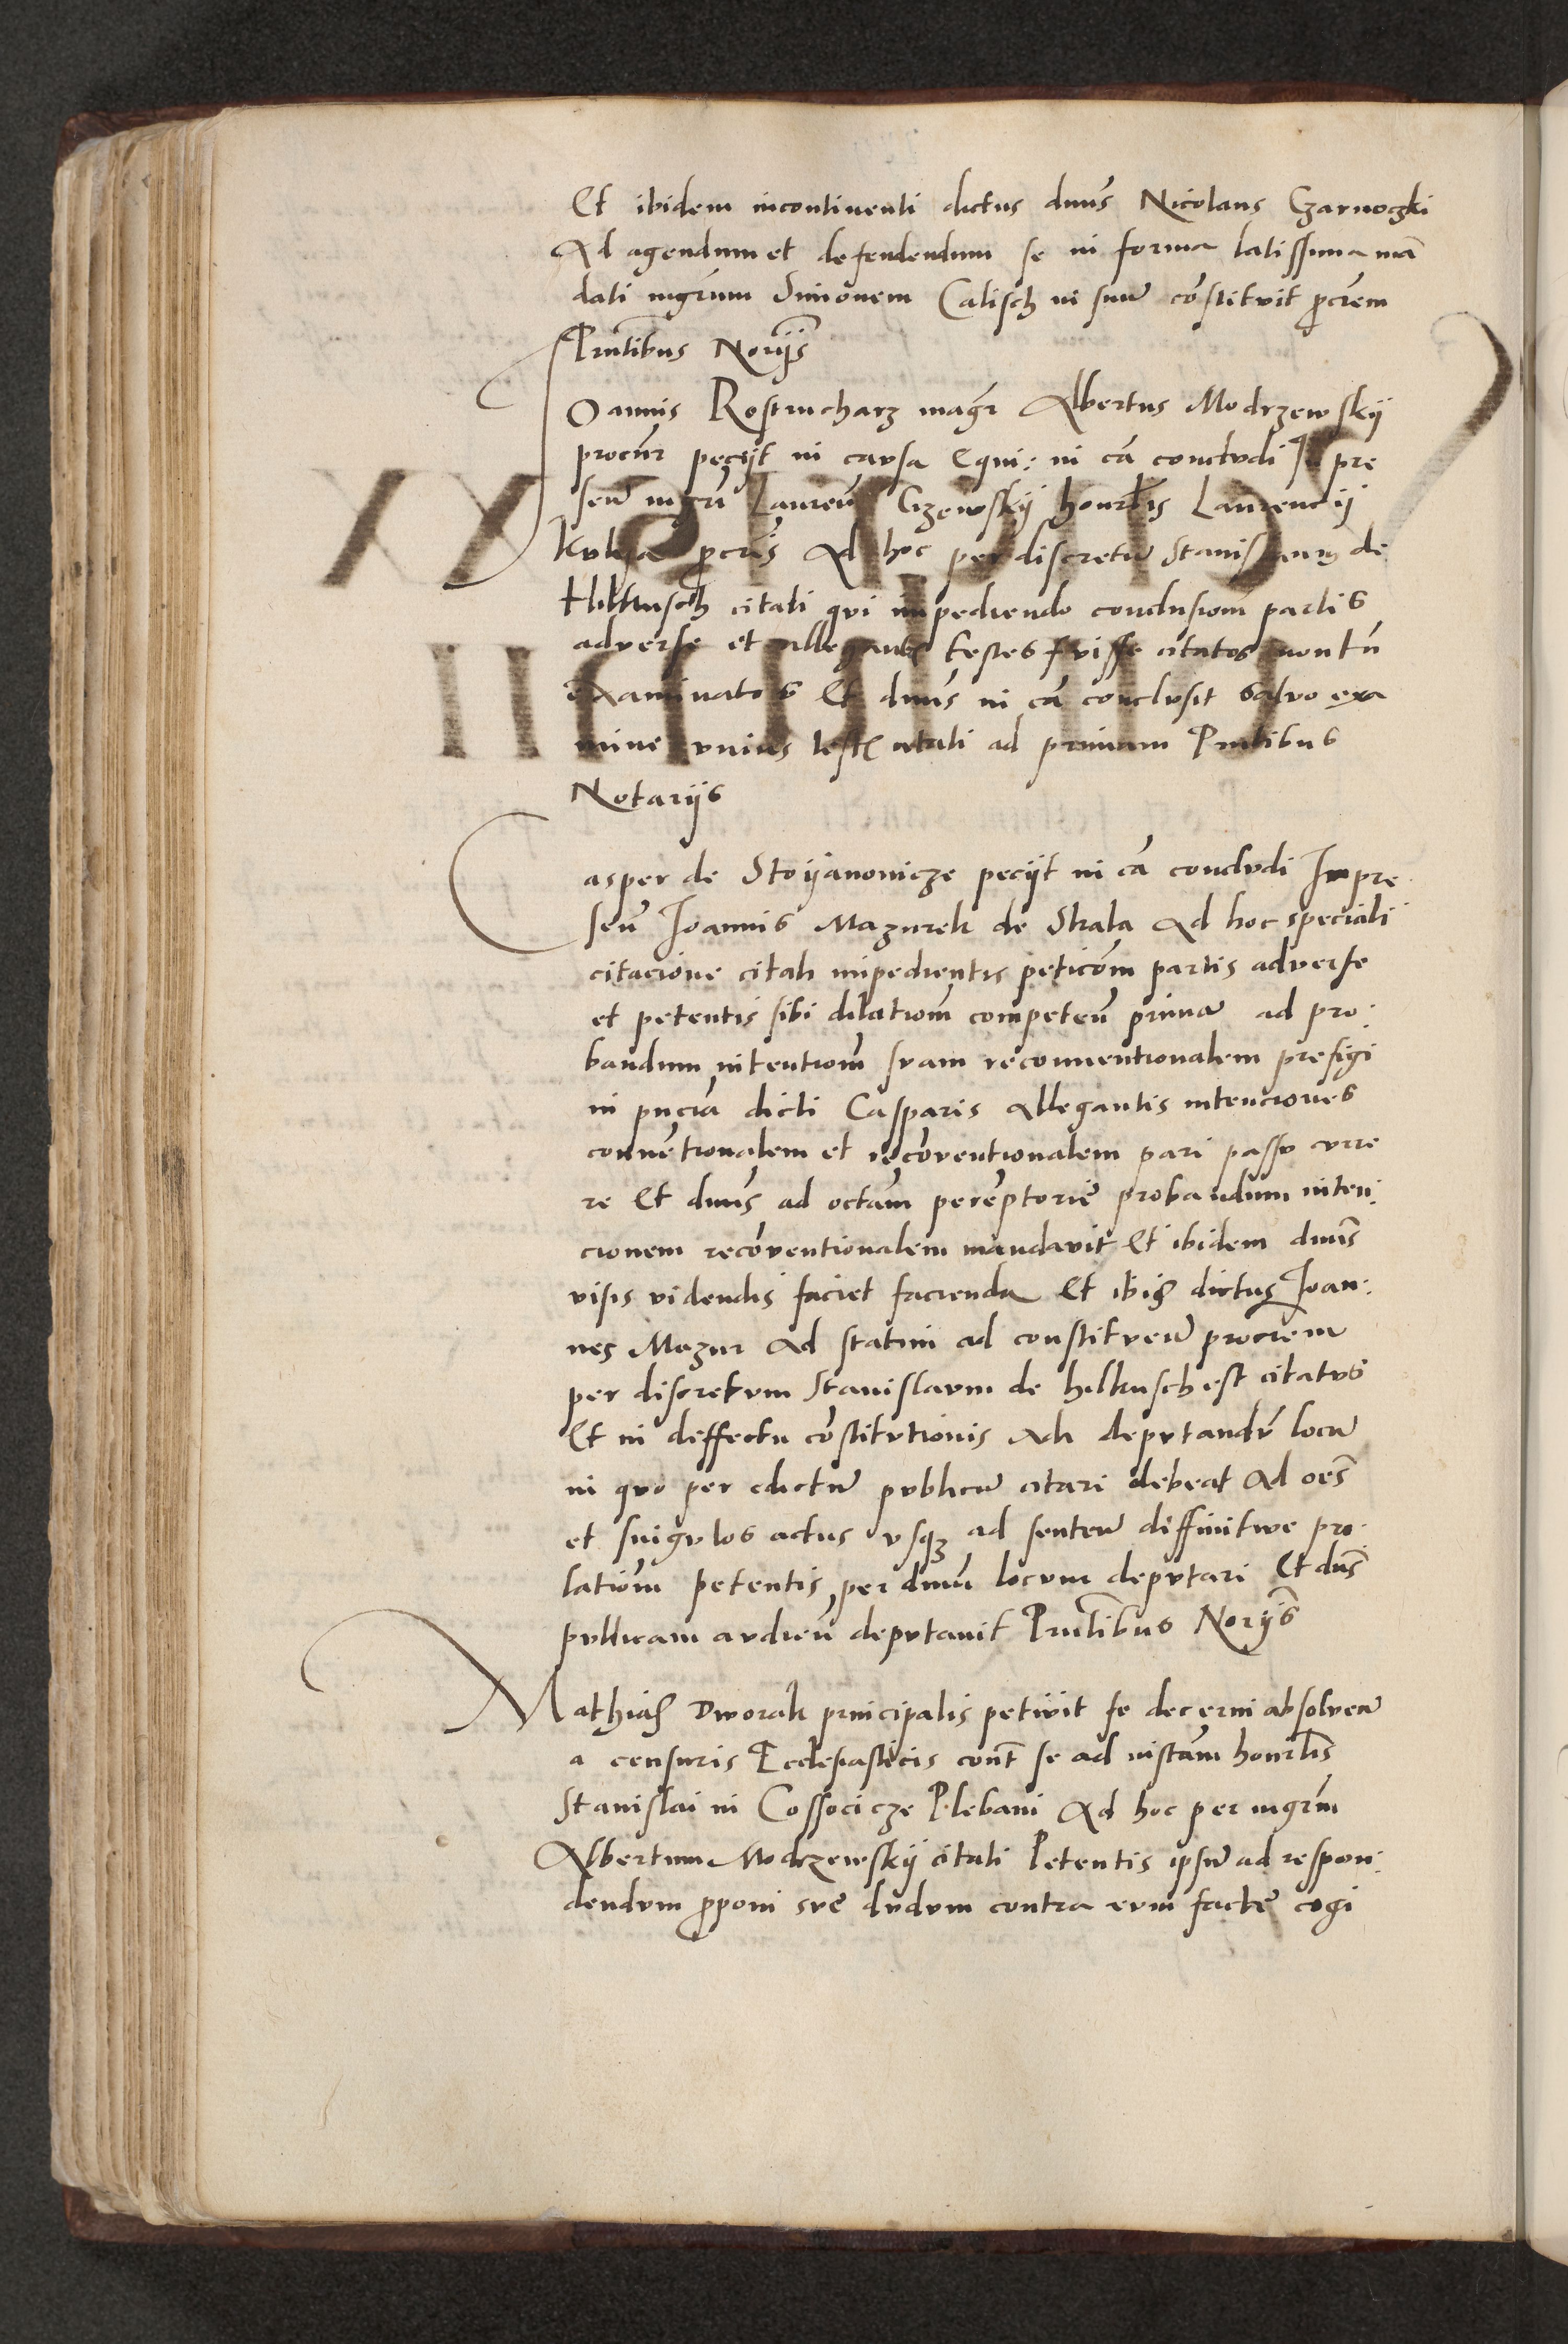 Et ibidem incontinenti dictus dnus Nicolaus Czarnoczki
Ad agendum et defendendum se in forma latissima man
dati mgrum Simonem Calisch in suum constituit procrem
Pntibus Norijs
Joannis Rostrucharz magr Albertus Modrzewskij
procur peciit in causa Equi: in ca concludi In pre
sen mgri Lauren Czewskij honrlis Laurencij
procris Ad hoc per discretum Stanislaum de
Hilkusch citati qui impediendo conclusiom partis
adverse et allegantis testes fuisse citatos non tn
examinatos Et dnus in ca conclusit salvo exa
mine unius testis citati ad primam Pntibus
Notarijs
Casper de Stoijanowicze peciit in ca concludi In pre
sen Joannis Mazurek de Skala Ad hoc speciali
citacione citati impedientis peticom partis adverse
et petentis sibi dilatiom competen primam ad pro:
bandum intentiom suam reconventionalem prefigi
in pncia dicti Casparis allegantis intenciones
conventionalem et reconventionalem pari passu curre
re Et dnus ad octam peremptorie probandum inten:
cionem reconventionalem mandavit Et ibidem dnus
visis videndis faciet facienda Et ibid dictus Joan:
nes Mazur Ad statim ad constituen procrem
per discretum Stanislaum de hilkusch est citatus
Et in deffectu constitutionis Ad deputandum locum
in quo per edictum publicum citari debeat Ad oes
et singulos actus usqz ad senten diffinitive pro:
latiom petentis per dnum locum deputari Et dnus
publicam audien deputavit Pntibus Norijs
Mathias Dworak principalis petivit se decerni absolven
a censuris Ecclesiasticis cont se ad instam honrlis
Stanislai in Cossocicze Plebani Ad hoc per mgrm
Albertum Modrzewskij citati Petentis ipsum ad respon:
dendum proponi sue dudum contra eum facte cogi